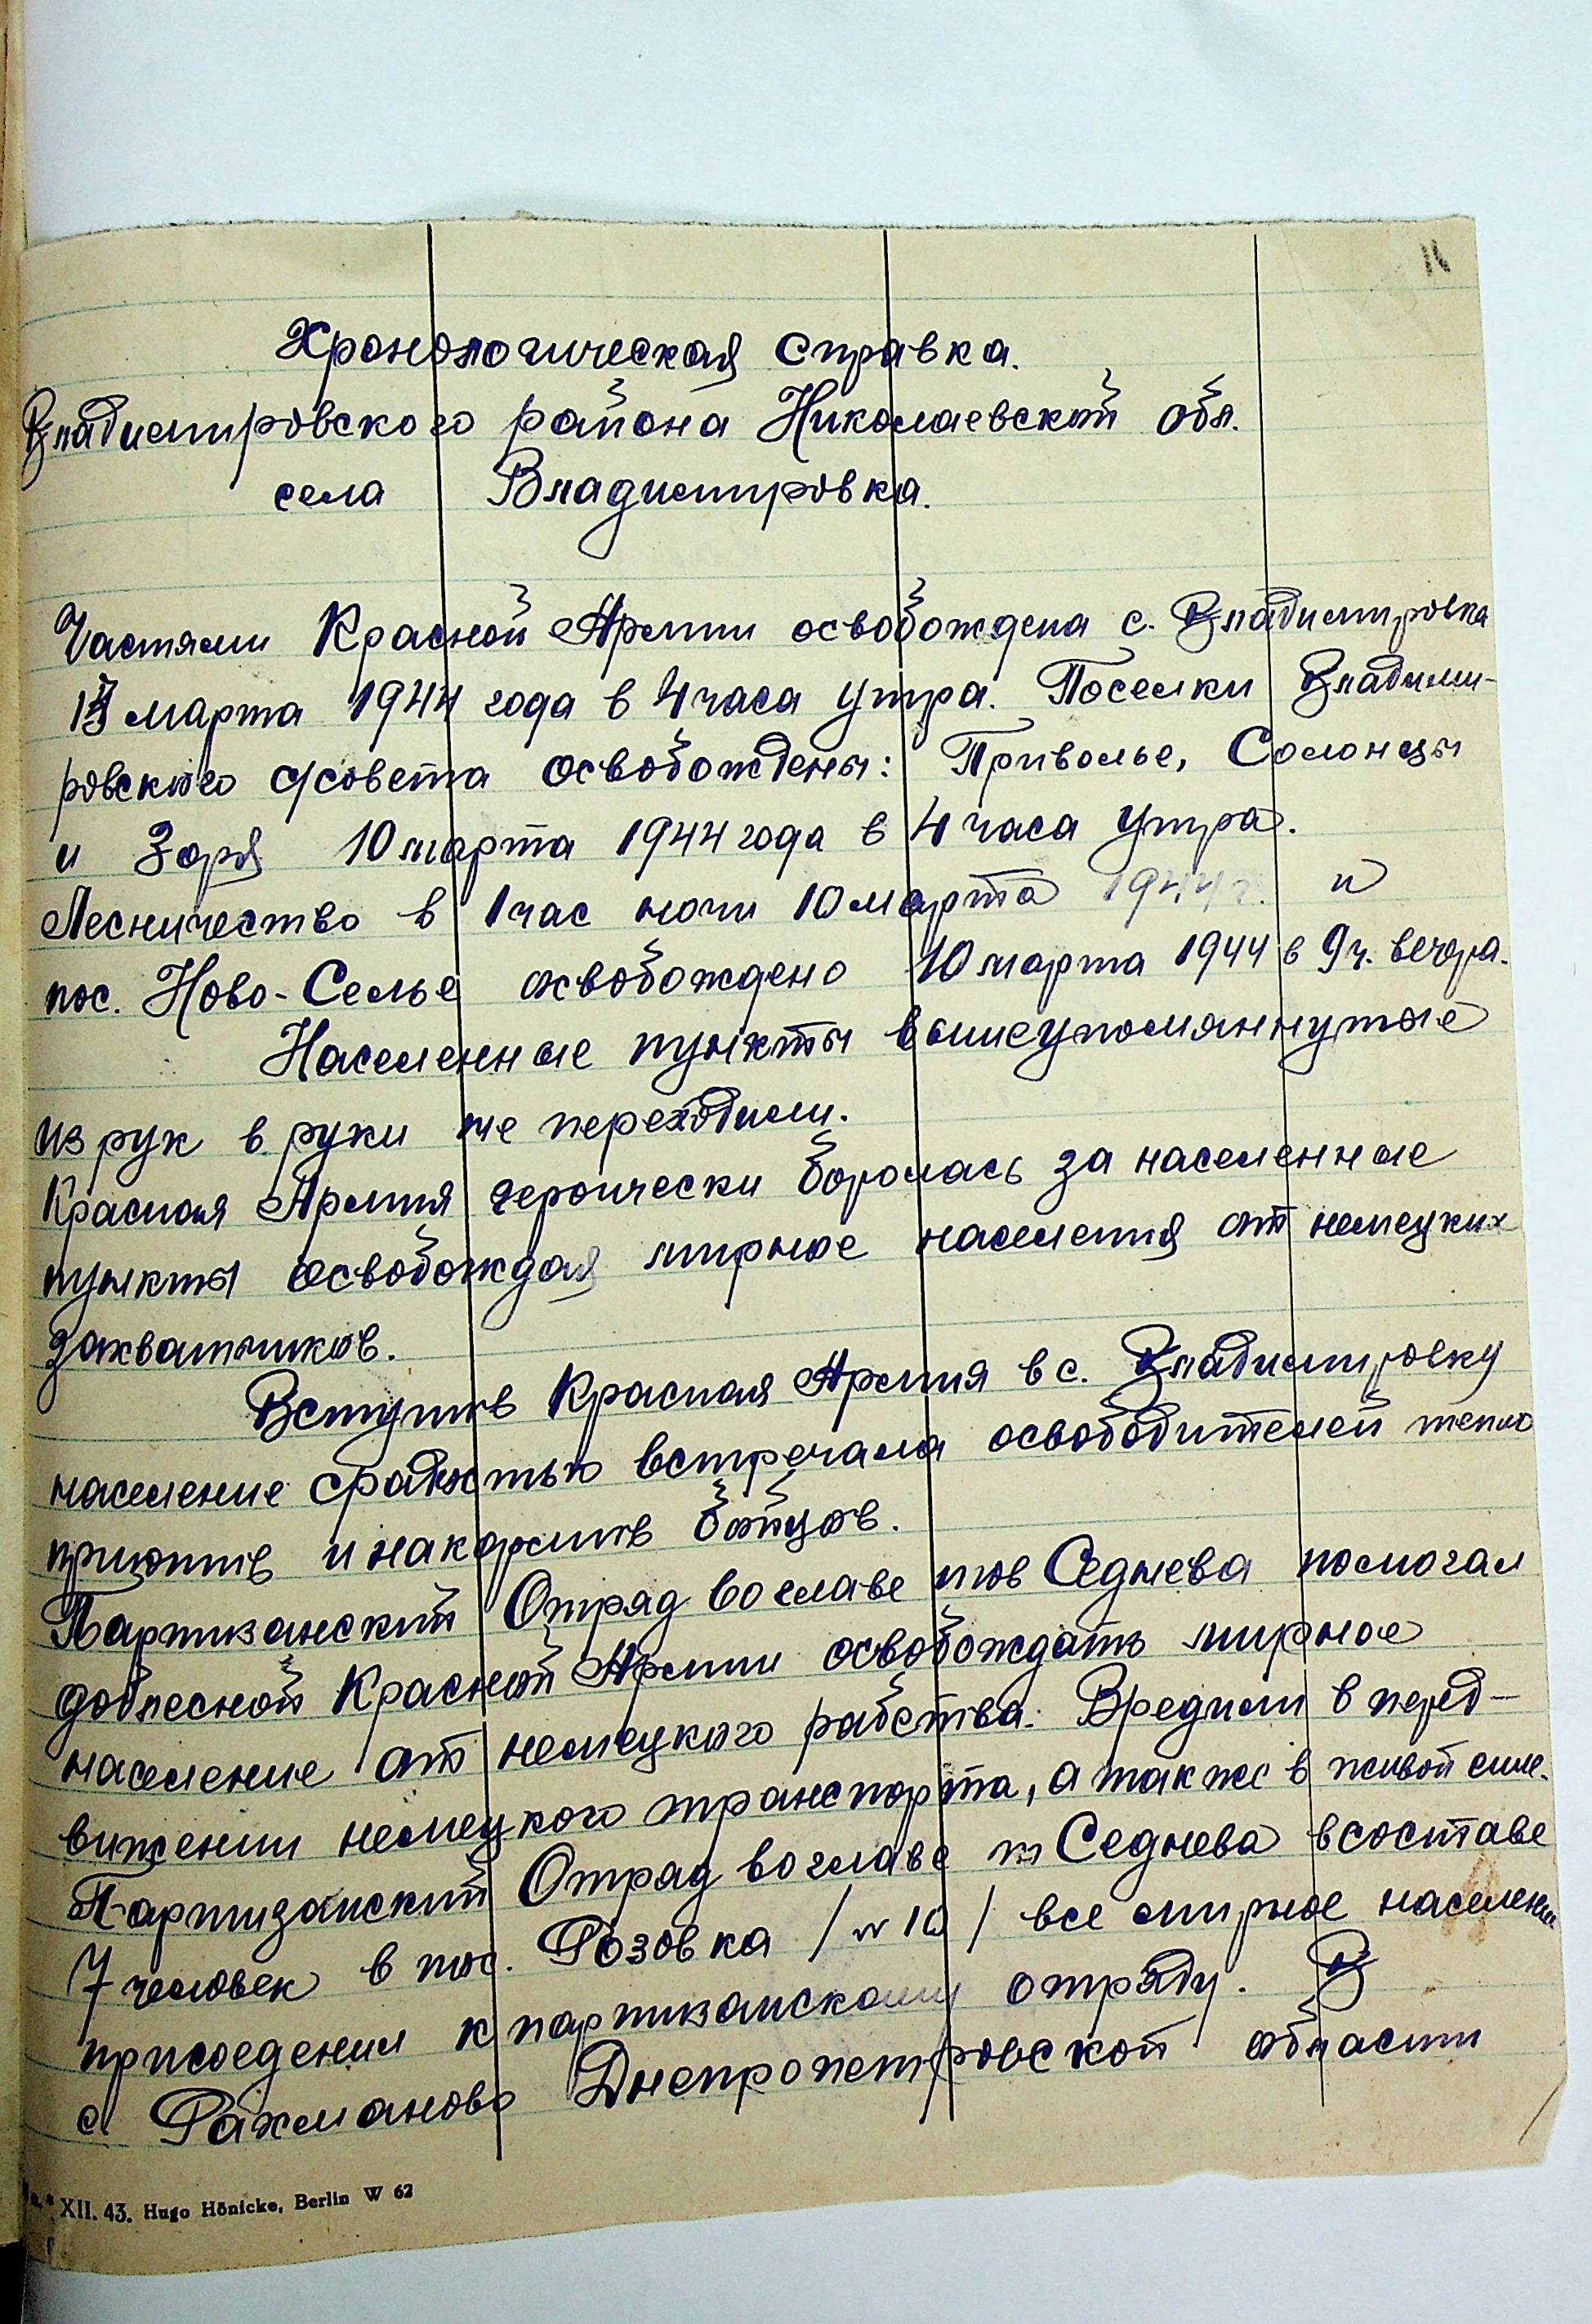 Хронологическая справка.
Владимировского района Николаевской обл.
села Владимировка.
Частями Красной Армии освобождена с. Владимировка
марта 1944 года в 4 часа утра. Поселки Владими-
ровского с/совета освобождены: Приволье, Солонцы
и Заря 10 марта 1944 года в 4 часа утра.
Лесничество в 1 час ночи 10 марта 1944 г. и
пос. Ново-Селье освобождено 10 марта 1944 в 9 ч. вечера.
Населенные пункты вышеупомяннутые
из рук в руки не переходили.
Красная Армия героически боролась за населенные
пункты освобождая мирное населения от немецких
захватчиков.
Вступив Красная Армия в с. Владимировку
население срадостью встречала освободителей тепло
приютив и накормив бойцов.
Партизанский Отряд во главе тов Седнева помогал
доблесной Красной Армии освобождать мирное
население от немецкого рабства. Вредили в перед-
вижении немецкого транспорта, а также в живой силе.
Партизанский Отряд во главе т Седнева в составе
7 человек в пос. Розовка / № 10 / все мирное население
присоеденил к партизанскому отряду. В
с. Рахманово Днепропетровской области
XII. 43. Hugo Hönicke, Berlin W 62